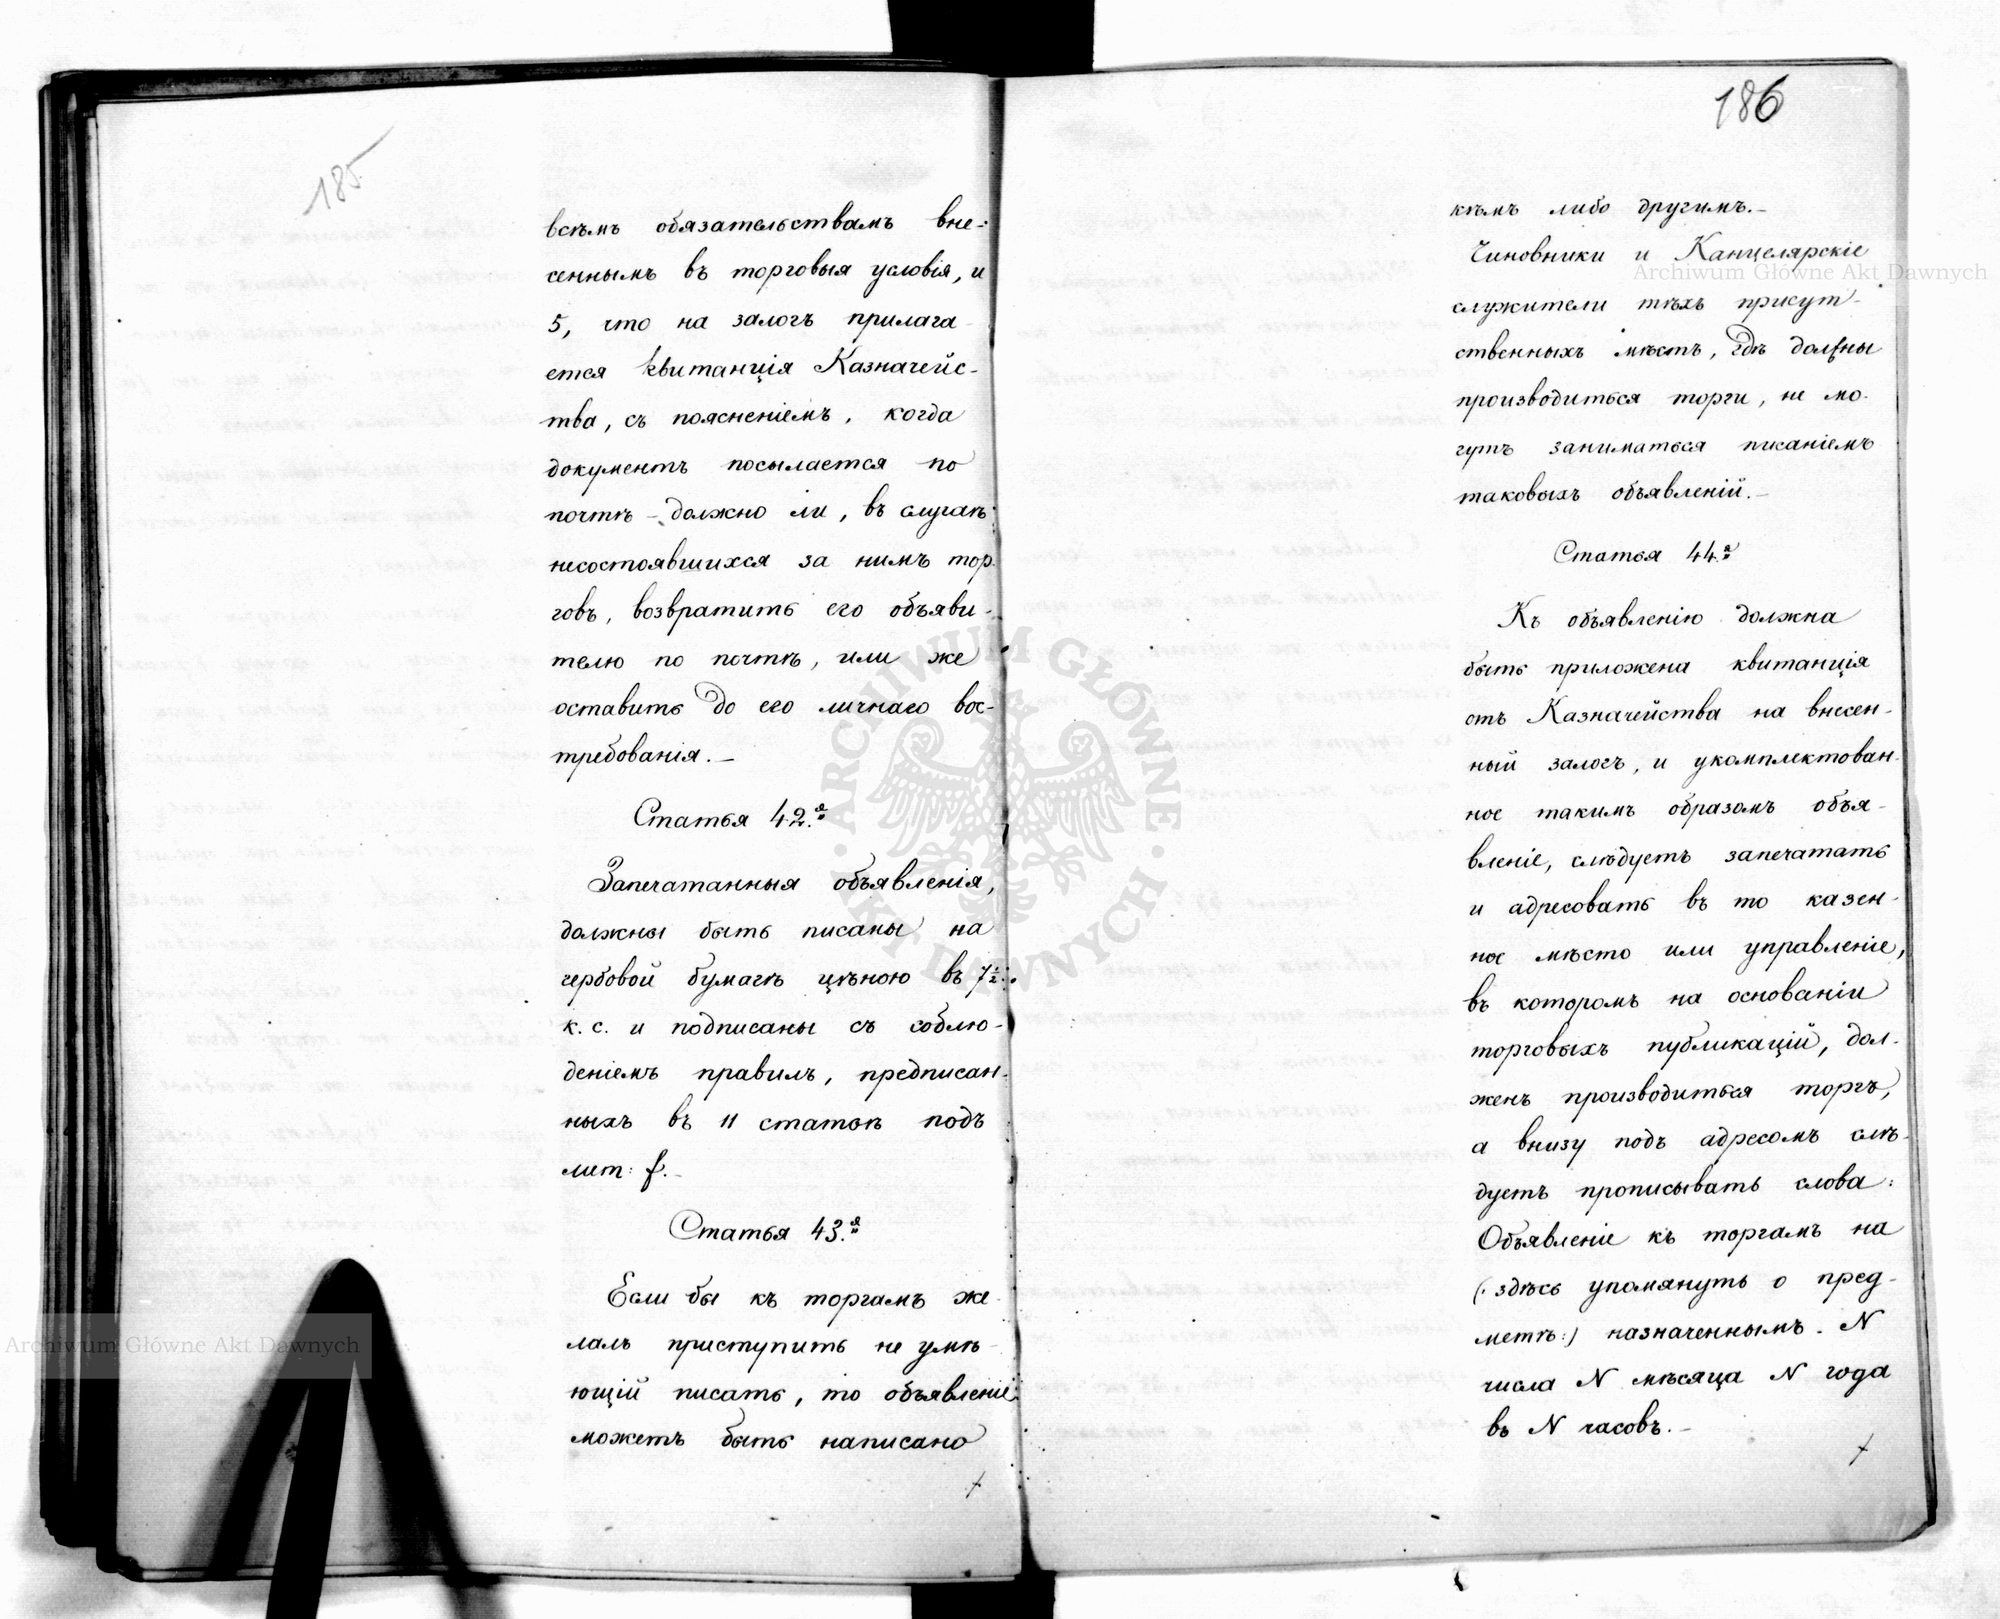 185.
всѣмъ обязательствамъ вне-
сеннымъ въ торговыя условія, и
5, что на залогъ прилага-
ется квитанція Казначейс-
тва, съ поясненіемъ, когда
документъ посылается по
почтѣ – должно ли, въ случаѣ
несостоявшихся за нимъ тор-
говъ, возвратить его объяви-
телю по почтѣ, или же
оставить до его личнаго вос-
требованія. –
Статья 42.я
Запечатанныя объявленія,
должны быть писаны на
гербовой бумагѣ цѣною въ 7½
к. с. и подписаны съ соблю-
деніемъ правилъ, предписан-
ныхъ въ 11 статьѣ подъ
лит: f. –
Статья 43.я
Если бы къ торгамъ же-
лалъ приступить не умѣ-
ющій писать, то объявленіе
можетъ быть написано
186
кѣмъ либо другимъ. –
Чиновники и Канцелярскіе
служители тѣхъ присут-
ственныхъ мѣстъ, гдѣ должны
производиться торги, не мо-
гутъ заниматься писаніемъ
таковыхъ объявленій. –
Статья 44.я
Къ объявленію должна
быть приложена квитанція
отъ Казначейства на внесен-
ный залогъ, и укомплектован-
ное такимъ образомъ объя-
вленіе, слѣдуетъ запечатать
и адресовать въ то казен-
ное мѣсто или управленіе,
въ которомъ на основаніи
торговыхъ публикацій, дол-
женъ производиться торгъ,
а внизу подъ адресомъ слѣ-
дуетъ прописывать слова:
Объявленіе къ торгамъ на
(: здѣсь упомянуть о пред-
метѣ:) назначеннымъ. N
числа N мѣсяца N года
въ N часовъ. –
Archiwum Główne Akt Dawnych
Archiwum Główne Akt Dawnych
ARCHIWUM GŁÓWNE · AKT DAWNYCH ·